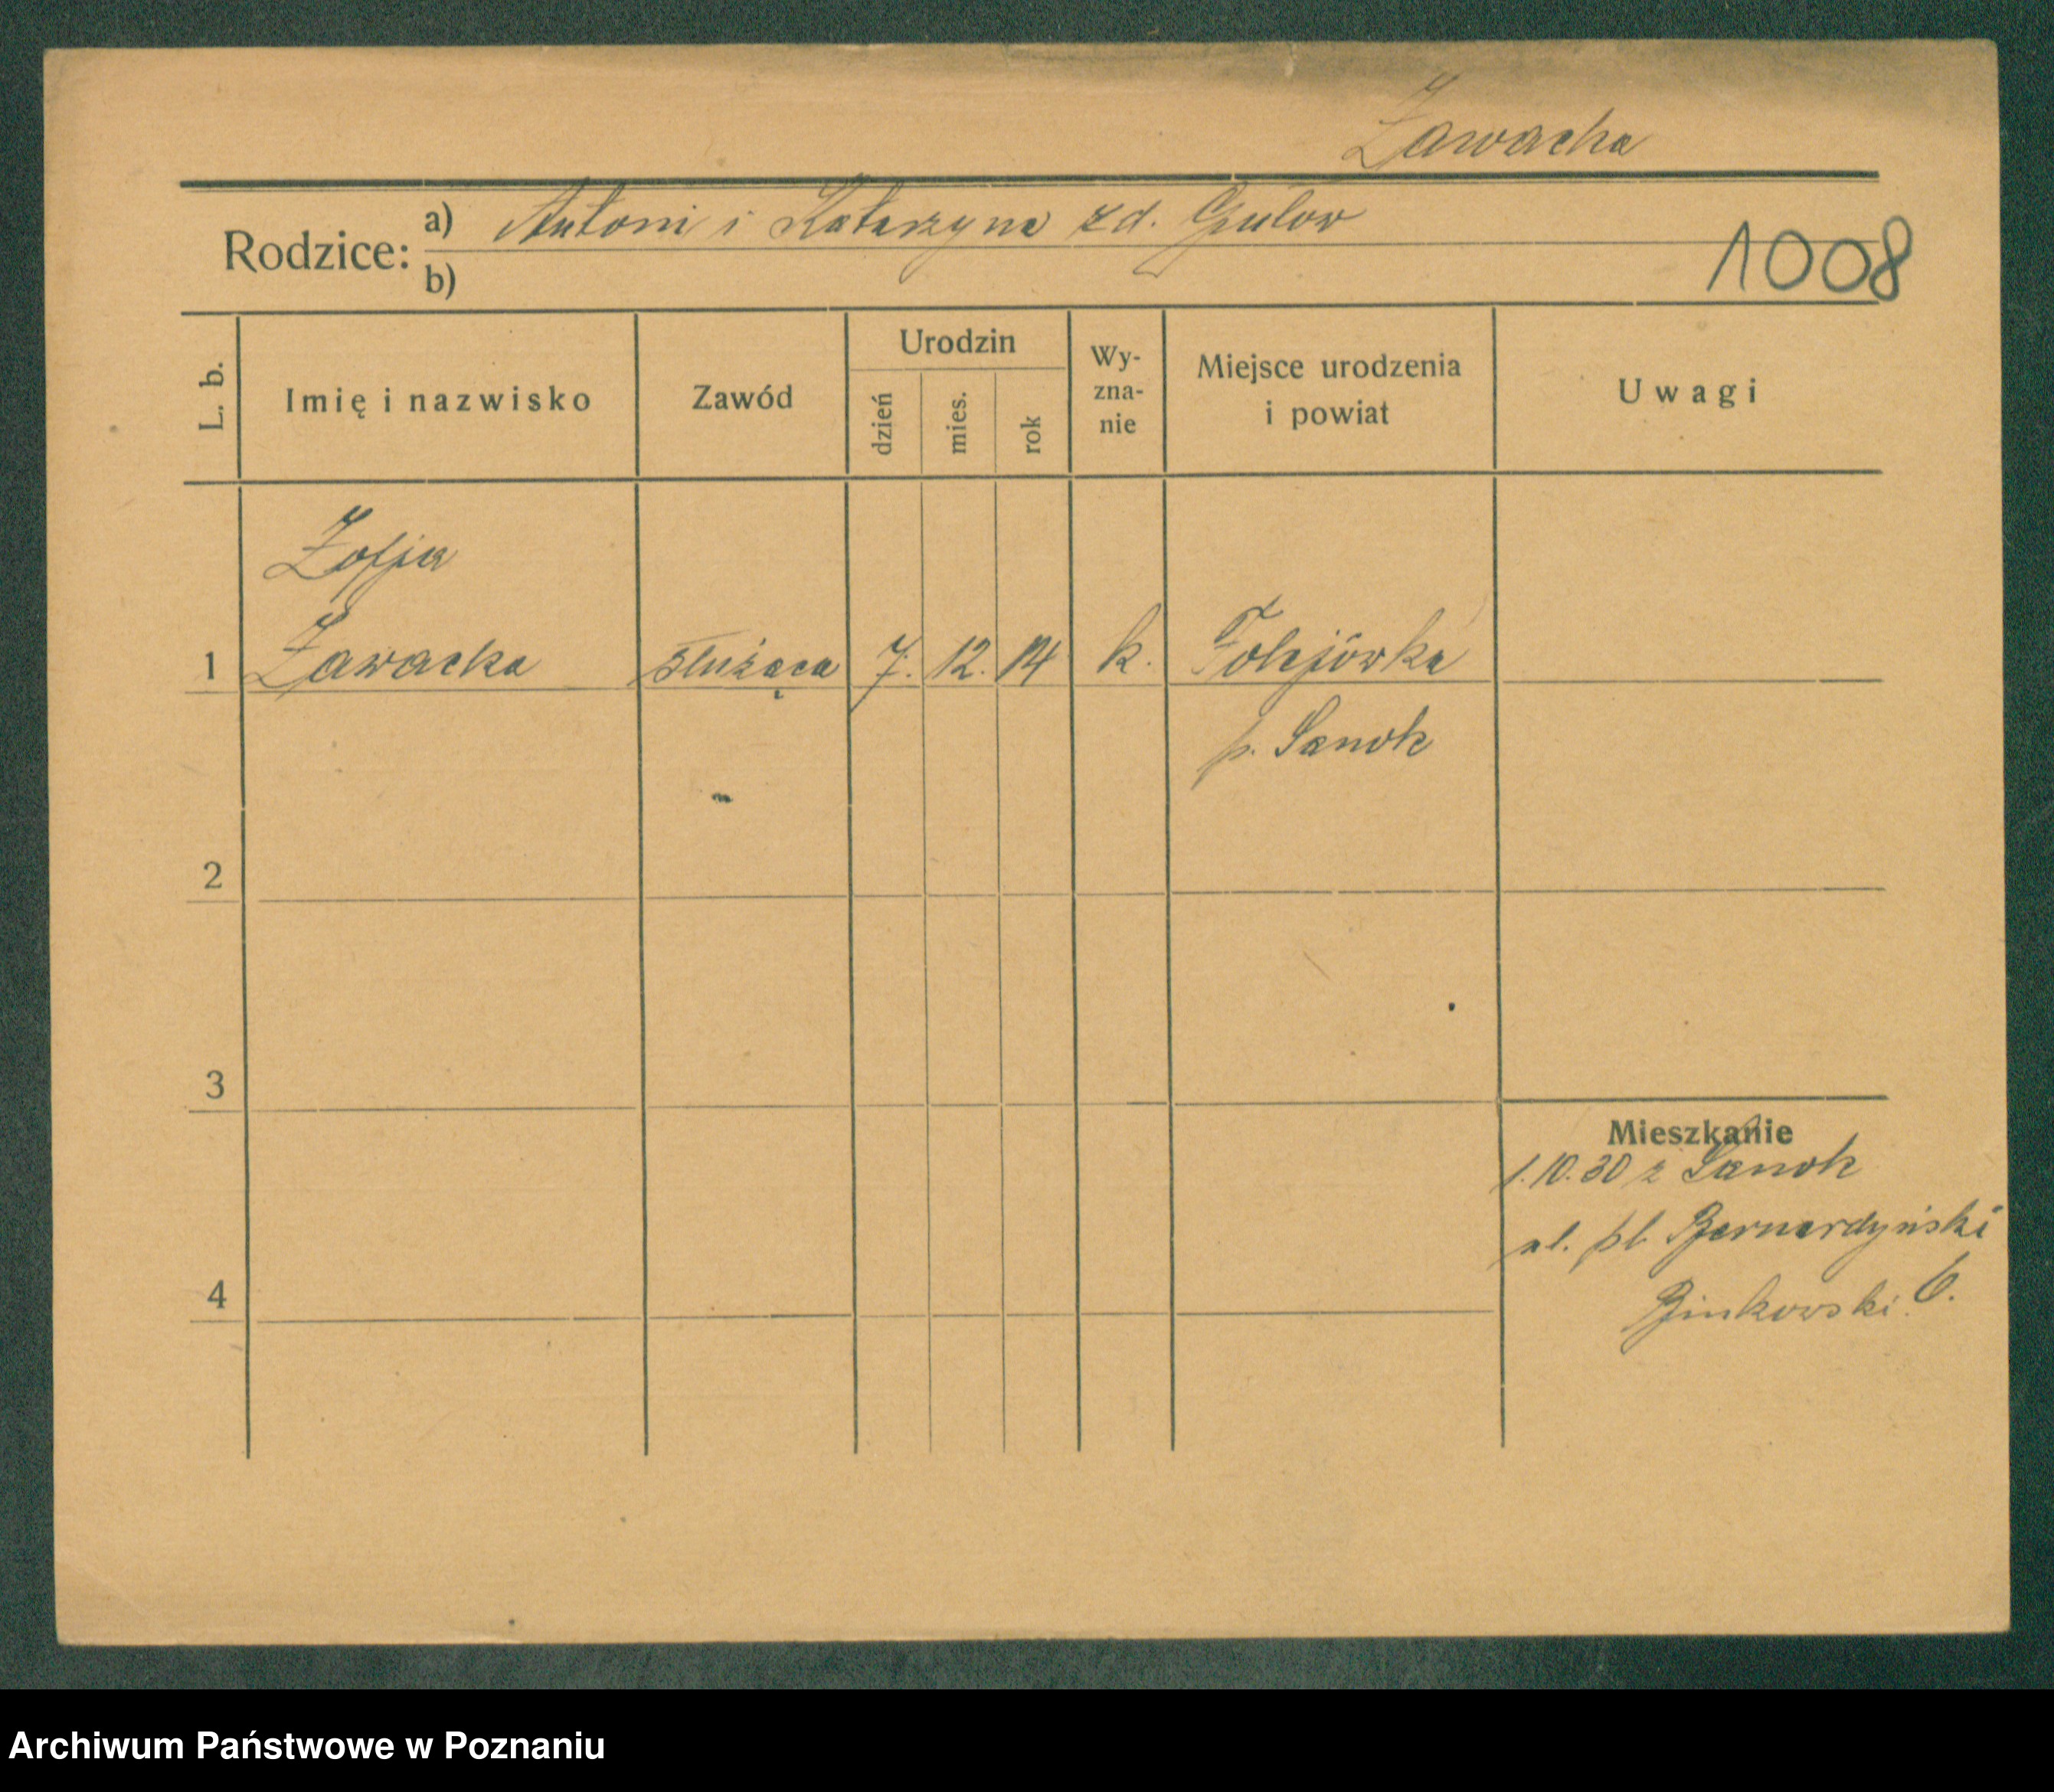 Zawacka
Rodzice: a) Antoni i Katarzyna zd. Gulow
b)
1008
L. b.
Imię i nazwisko
Zawód
Urodzin
dzień
mies.
rok
Wy-
zna-
nie
Miejsce urodzenia
i powiat
Uwagi
Zofja
1 Zawacka służąca 7. 12. 14 k. Tolejówka
p. Sanok
2
3
Mieszkanie
1.10.30 z Sanok
ul. pl. Bernardyński
4
Binkowski 6.
Archiwum Państwowe w Poznaniu